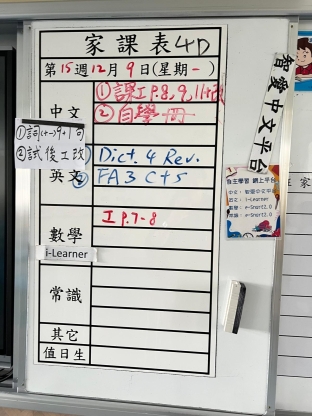 家課表4D
第15週12月9日(星期一)
中文
①課工P.8,9,11+改
②自學冊
①詞(十一)9+1句
②試後工改
英文
① Dict. 4 Rev.
② FA3 C+S
數學
工 P.7-8
i-Learner
常識
其它
值日生
智愛中文平台
自主學習 網上平台
中文：智愛中文平台
英文：i-Learner
數學：e-Smart2.0
常識：e-Smart2.0
家